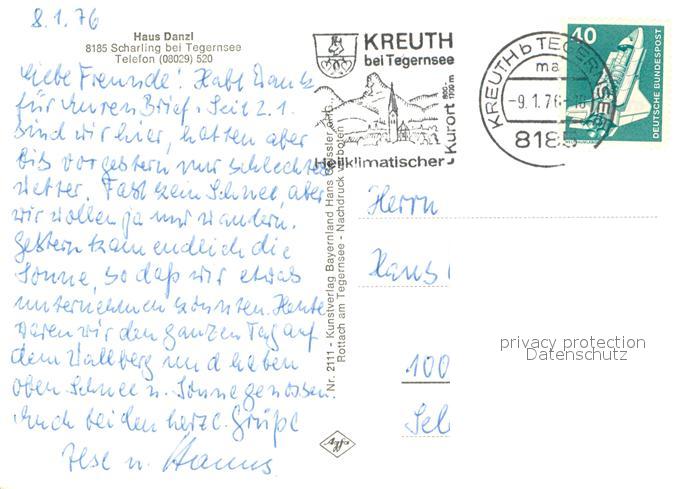 8.1.76
Haus Danzl
8185 Scharling bei Tegernsee
Telefon (08029) 520
Liebe Freunde! Habt Dank
für Euren Brief. Seit 2.1.
sind wir hier, hatten aber
bis vorgestern nur schlechtes
Wetter. Fast kein Schnee, aber
wir wollen ja nur wandern.
Gestern kam endlich die
Sonne, so daß wir etwas
unternehmen konnten. Heute
waren wir den ganzen Tag auf
dem Wallberg und haben
oben Schnee u. Sonne genossen.
Euch beiden herzl. Grüße
Ilse u. Hanns
Nr. 2111 - Kunstverlag Bayernland Hans
Rottach am Tegernsee - Nachdruck verboten
Agfa
KREUTH
bei Tegernsee
Kurort 800-
m
Heilklimatischer
KREUTH b TEGERNSEE
ma
-9.1.76-16
8185
40
DEUTSCHE BUNDESPOST
Herrn
Hans
100
privacy protection
Datenschutz